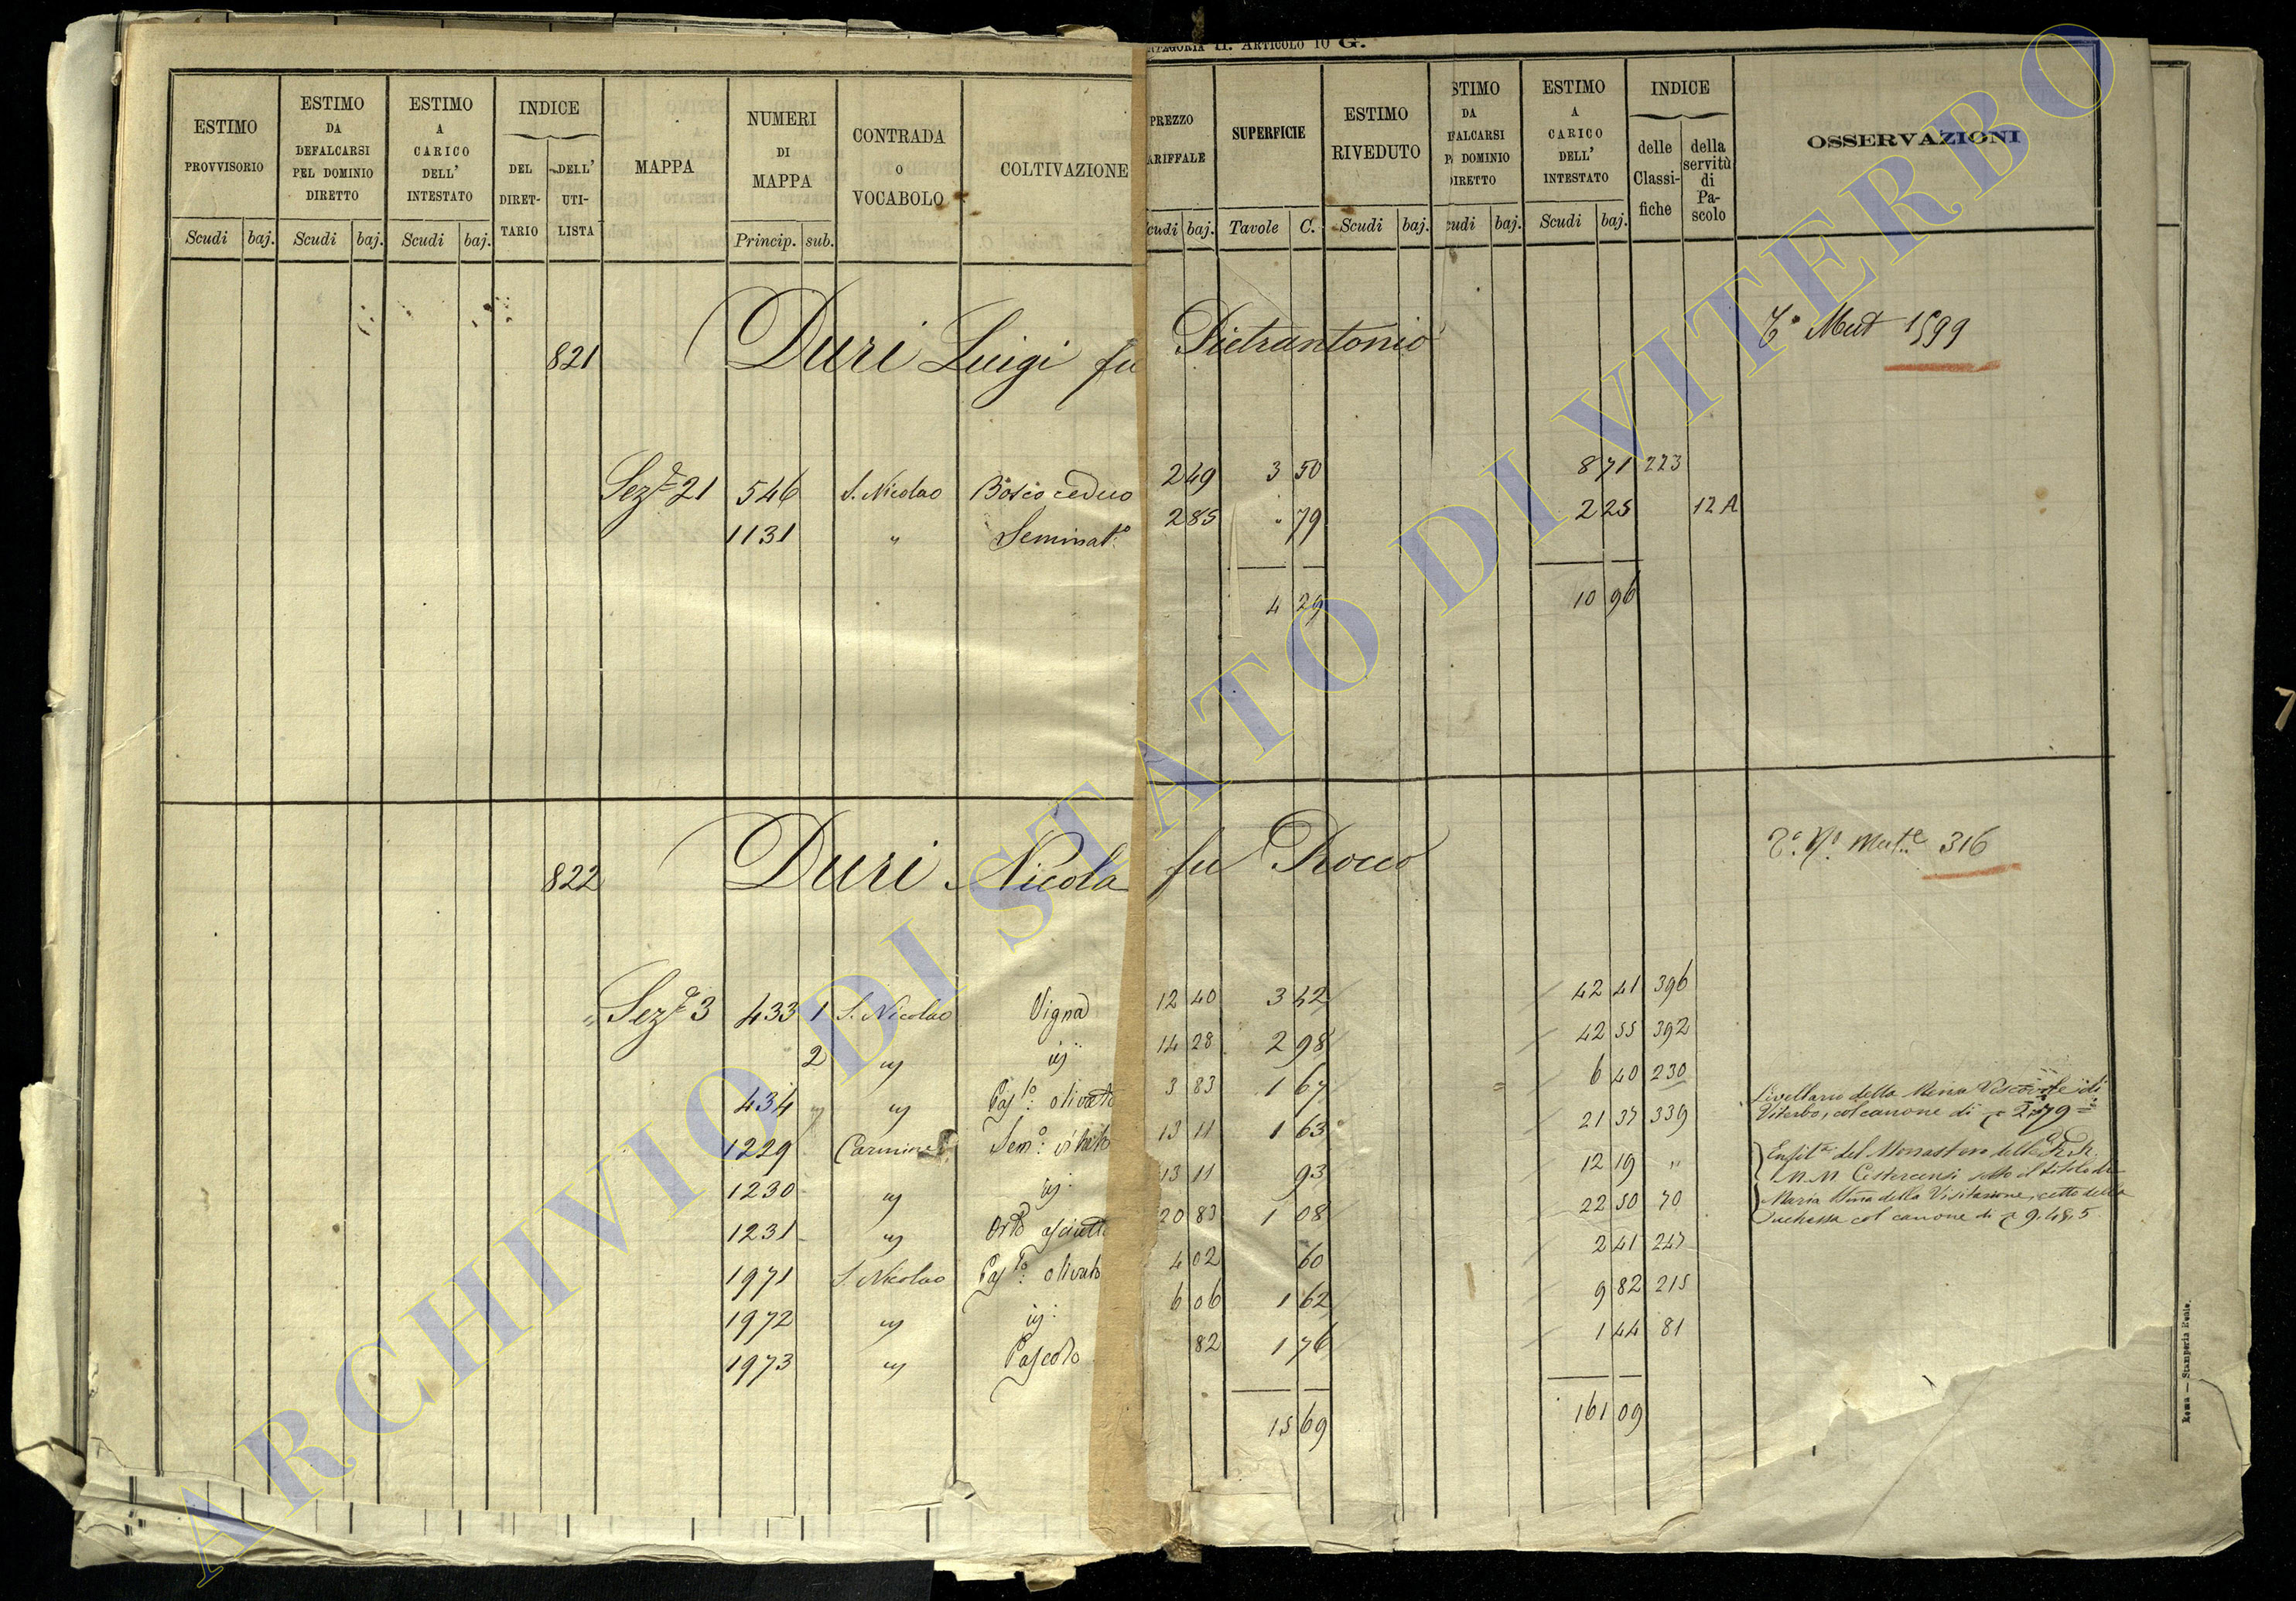 CATEGORIA II. ARTICOLO 10 G.
ESTIMO PROVVISORIO
ESTIMO DA DEFALCARSI PEL DOMINIO DIRETTO
ESTIMO A CARICO DELL' INTESTATO
INDICE
DEL DIRET-TARIO
DELL' UTI-LISTA
MAPPA
NUMERI DI MAPPA
CONTRADA O VOCABOLO
COLTIVAZIONE
PREZZO ARIFFALE
SUPERFICIE
ESTIMO RIVEDUTO
STIMO DA FALCARSI DOMINIO DIRETTO
ESTIMO A CARICO DELL' INTESTATO
INDICE
delle Classi-fiche
della servitù di Pa-scolo
OSSERVAZIONI
Scudi baj. Scudi baj. Scudi baj. Princip. sub. cudi baj. Tavole C. Scudi baj. cudi baj. Scudi baj.
821 Duri Luigi fu Pietrantonio Mut 1599
Sez.ª 21 546 S. Nicolao Bosco ceduo 2 49 3 50 8 71 223
1131 " Seminat.o 2 85 " 79 2 25 12 A
4 29 10 96
822 Duri Nicola fu Rocco N.º Mut.e 316
" Sez.ª 3 433 1 S. Nicolao Vigna 12 40 3 42 42 41 396
2 " " 14 28 2 98 42 55 392
434 " " Pas.to olivato 3 83 1 67 6 40 230
Livellario della Mensa Vescovile di
Viterbo, col canone di 2,79
1229 Carmine Sem.o vitato 13 11 1 63 21 37 339
1230 " " 13 11 93 12 19 "
Enfit.a del Monastero delle R.R.
M.M. Cistercensi sotto il titolo di
1231 " Orto asciutto 20 83 1 08 22 50 70
Maria SSma della Visitazione, detto della
Duchessa col canone di 9.48.5
1971 S. Nicolao Pas.to olivato 4 02 60 2 41 227
1972 " " 6 06 1 62 9 82 215
1973 " Pascolo 82 1 76 1 44 81
15 69 161 09
Roma — Stamperia Reale.
7
ARCHIVIO DI STATO DI VITERBO